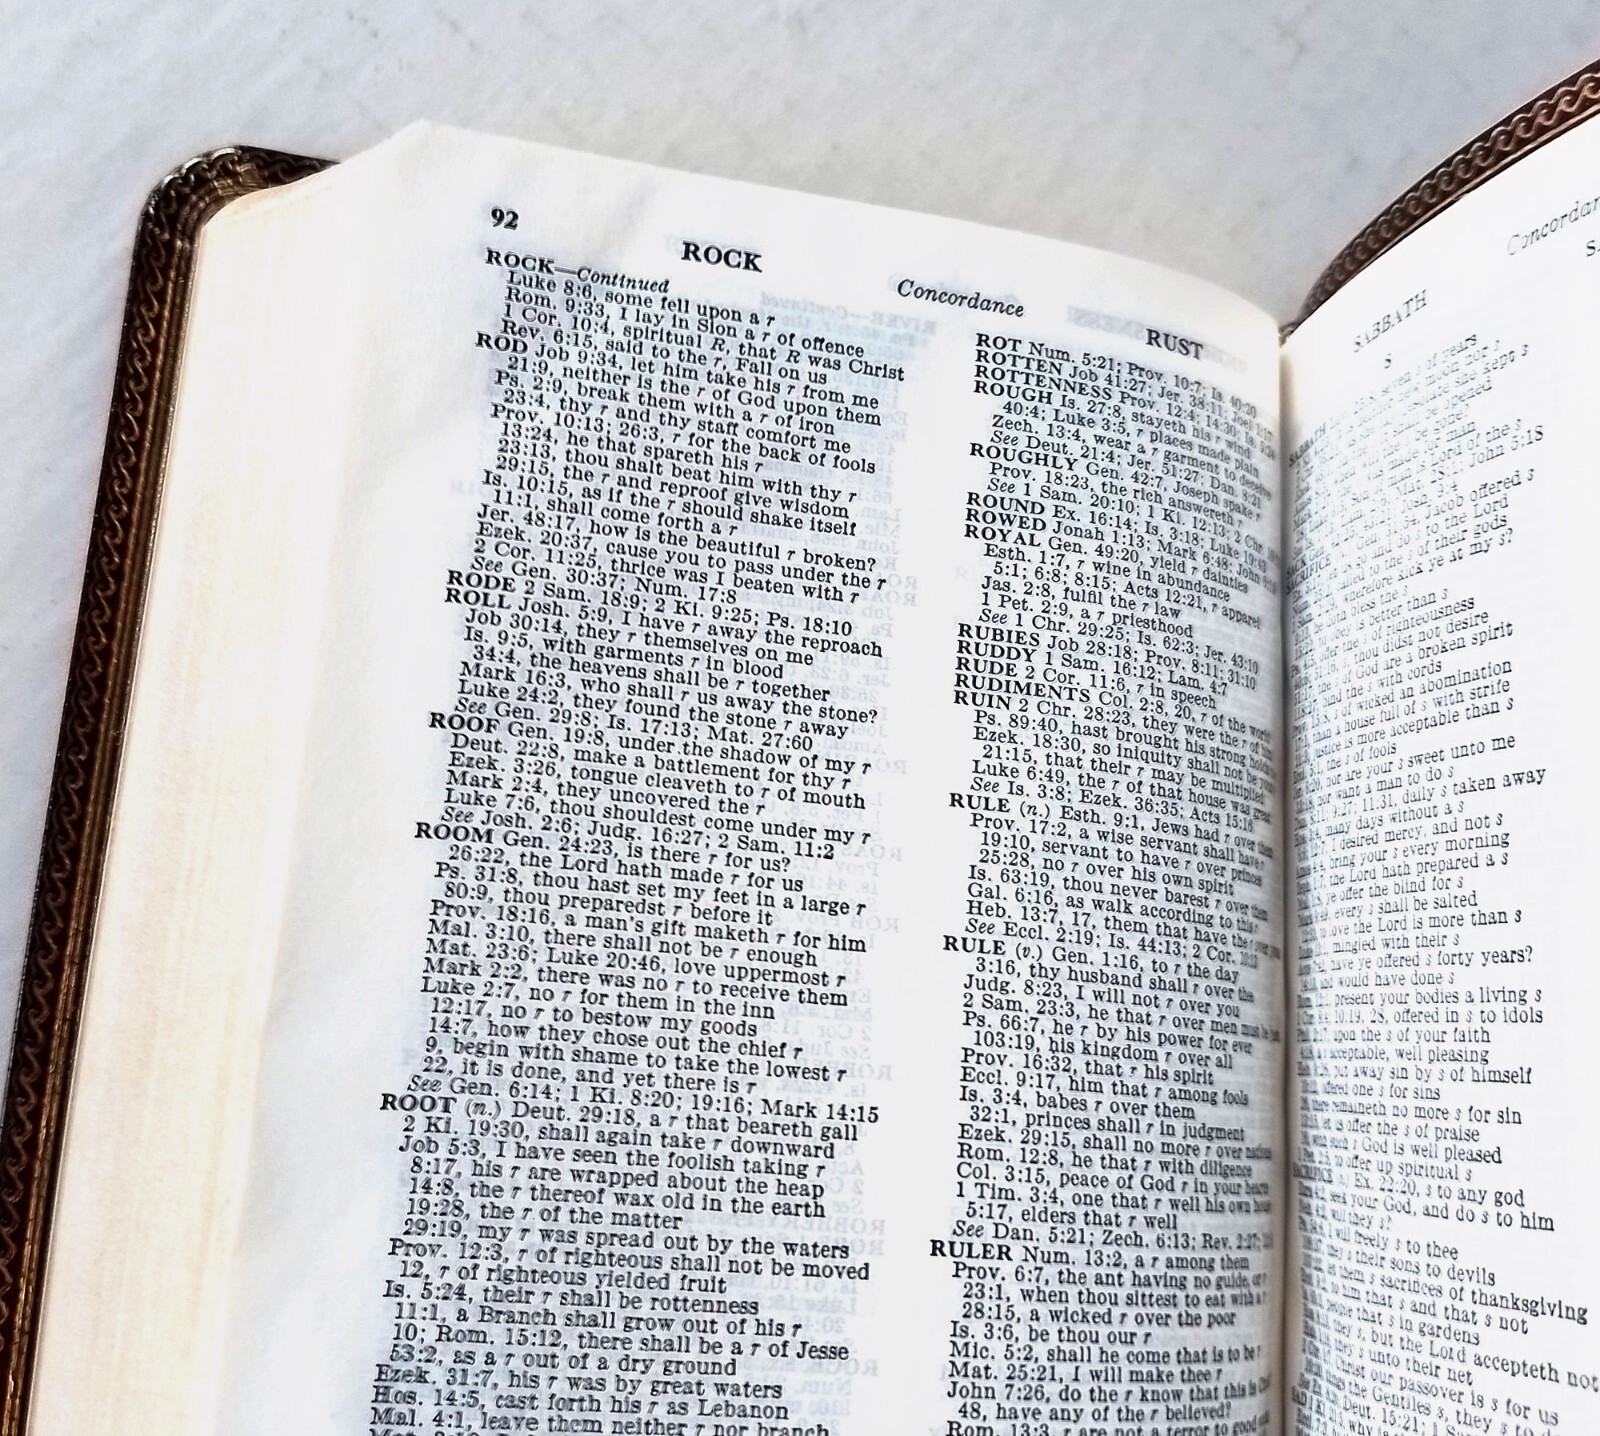 92
ROCK
Concordance
RUST
ROCK—Continued
Luke 8:6, some fell upon a r
Rom. 9:33, I lay in Sion a r of offence
1 Cor. 10:4, spiritual R, that R was Christ
Rev. 6:15, said to the r, Fall on us
ROD Job 9:34, let him take his r from me
21:9, neither is the r of God upon them
Ps. 2:9, break them with a r of iron
23:4, thy r and thy staff comfort me
Prov. 10:13; 26:3, r for the back of fools
13:24, he that spareth his r
23:13, thou shalt beat him with thy r
29:15, the r and reproof give wisdom
Is. 10:15, as if the r should shake itself
11:1, shall come forth a r
Jer. 48:17, how is the beautiful r broken?
Ezek. 20:37, cause you to pass under the r
2 Cor. 11:25, thrice was I beaten with r
See Gen. 30:37; Num. 17:8
RODE 2 Sam. 18:9; 2 Ki. 9:25; Ps. 18:10
ROLL Josh. 5:9, I have r away the reproach
Job 30:14, they r themselves on me
Is. 9:5, with garments r in blood
34:4, the heavens shall be r together
Mark 16:3, who shall r us away the stone?
Luke 24:2, they found the stone r away
See Gen. 29:8; Is. 17:13; Mat. 27:60
ROOF Gen. 19:8, under the shadow of my r
Deut. 22:8, make a battlement for thy r
Ezek. 3:26, tongue cleaveth to r of mouth
Mark 2:4, they uncovered the r
Luke 7:6, thou shouldest come under my r
See Josh. 2:6; Judg. 16:27; 2 Sam. 11:2
ROOM Gen. 24:23, is there r for us?
26:22, the Lord hath made r for us
Ps. 31:8, thou hast set my feet in a large r
80:9, thou preparedst r before it
Prov. 18:16, a man's gift maketh r for him
Mal. 3:10, there shall not be r enough
Mat. 23:6; Luke 20:46, love uppermost r
Mark 2:2, there was no r to receive them
Luke 2:7, no r for them in the inn
12:17, no r to bestow my goods
14:7, how they chose out the chief r
9, begin with shame to take the lowest r
22, it is done, and yet there is r
See Gen. 6:14; 1 Ki. 8:20; 19:16; Mark 14:15
ROOT (n.) Deut. 29:18, a r that beareth gall
2 Ki. 19:30, shall again take r downward
Job 5:3, I have seen the foolish taking r
8:17, his r are wrapped about the heap
14:8, the r thereof wax old in the earth
19:28, the r of the matter
29:19, my r was spread out by the waters
Prov. 12:3, r of righteous shall not be moved
12, r of righteous yielded fruit
Is. 5:24, their r shall be rottenness
11:1, a Branch shall grow out of his r
10; Rom. 15:12, there shall be a r of Jesse
53:2, as a r out of a dry ground
Ezek. 31:7, his r was by great waters
Hos. 14:5, cast forth his r as Lebanon
Mal. 4:1, leave them neither r nor branch
ROT Num. 5:21; Prov. 10:7; Is. 40:20
ROTTEN Job 41:27; Jer. 38:11; Joel 1:17
ROTTENNESS Prov. 12:4; 14:30; Is.
ROUGH Is. 27:8, stayeth his r wind
40:4; Luke 3:5, r places made plain
Zech. 13:4, wear a r garment to deceive
See Deut. 21:4; Jer. 51:27; Dan. 8:21
ROUGHLY Gen. 42:7, Joseph spake r
Prov. 18:23, the rich answereth r
See 1 Sam. 20:10; 1 Ki. 12:13; 2 Chr.
ROUND Ex. 16:14; Is. 3:18; Luke 19:43
ROWED Jonah 1:13; Mark 6:48; John
ROYAL Gen. 49:20, yield r dainties
Esth. 1:7, r wine in abundance
5:1; 6:8; 8:15; Acts 12:21, r apparel
Jas. 2:8, fulfil the r law
1 Pet. 2:9, a r priesthood
See 1 Chr. 29:25; Is. 62:3; Jer. 43:10
RUBIES Job 28:18; Prov. 8:11; 31:10
RUDDY 1 Sam. 16:12; Lam. 4:7
RUDE 2 Cor. 11:6, r in speech
RUDIMENTS Col. 2:8, 20, r of the world
RUIN 2 Chr. 28:23, they were the r of him
Ps. 89:40, hast brought his strong holds
Ezek. 18:30, so iniquity shall not be your
21:15, that their r may be multiplied
Luke 6:49, the r of that house was great
See Is. 3:8; Ezek. 36:35; Acts 15:16
RULE (n.) Esth. 9:1, Jews had r over them
Prov. 17:2, a wise servant shall have r
19:10, servant to have r over princes
25:28, no r over his own spirit
Is. 63:19, thou never barest r over them
Gal. 6:16, as walk according to this r
Heb. 13:7, 17, them that have the r over you
See Eccl. 2:19; Is. 44:13; 2 Cor. 10:13
RULE (v.) Gen. 1:16, to r the day
3:16, thy husband shall r over thee
Judg. 8:23, I will not r over you
2 Sam. 23:3, he that r over men must be just
Ps. 66:7, he r by his power for ever
103:19, his kingdom r over all
Prov. 16:32, that r his spirit
Eccl. 9:17, him that r among fools
Is. 3:4, babes r over them
32:1, princes shall r in judgment
Ezek. 29:15, shall no more r over nations
Rom. 12:8, he that r with diligence
Col. 3:15, peace of God r in your hearts
1 Tim. 3:4, one that r well his own house
5:17, elders that r well
See Dan. 5:21; Zech. 6:13; Rev. 2:27;
RULER Num. 13:2, a r among them
Prov. 6:7, the ant having no guide, or r
23:1, when thou sittest to eat with a r
28:15, a wicked r over the poor
Is. 3:6, be thou our r
Mic. 5:2, shall he come that is to be r
Mat. 25:21, I will make thee r
John 7:26, do the r know that this is
48, have any of the r believed?
Rom. 13:3, r are not a terror to good
Concordan
SABBATH
S
seven s of years
John 5:18
Jacob offered s
to the Lord
of their gods
wherefore kick ye at my s?
bless the s
to obey is better than s
offer the s of righteousness
thou didst not desire
of God are a broken spirit
bind the s with cords
s of wicked an abomination
than a house full of s with strife
justice is more acceptable than s
the s of fools
nor are your s sweet unto me
nor want a man to do s
8:11; 9:27; 11:31, daily s taken away
many days without a s
I desired mercy, and not s
bring your s every morning
the Lord hath prepared a s
ye offer the blind for s
every s shall be salted
to love the Lord is more than s
mingled with their s
have ye offered s forty years?
would have done s
present your bodies a living s
10:19, 28, offered in s to idols
upon the s of your faith
acceptable, well pleasing
put away sin by s of himself
offered one s for sins
there remaineth no more s for sin
let us offer the s of praise
with such s God is well pleased
to offer up spiritual s
Ex. 22:20, s to any god
your God, and do s to him
will they s?
I will freely s to thee
they s their sons to devils
let them s sacrifices of thanksgiving
to him that s and that s not
people that s in gardens
they s, but the Lord accepteth not
they s unto their net
Christ our passover is s for us
things the Gentiles s, they s to
Deut. 15:21; 1